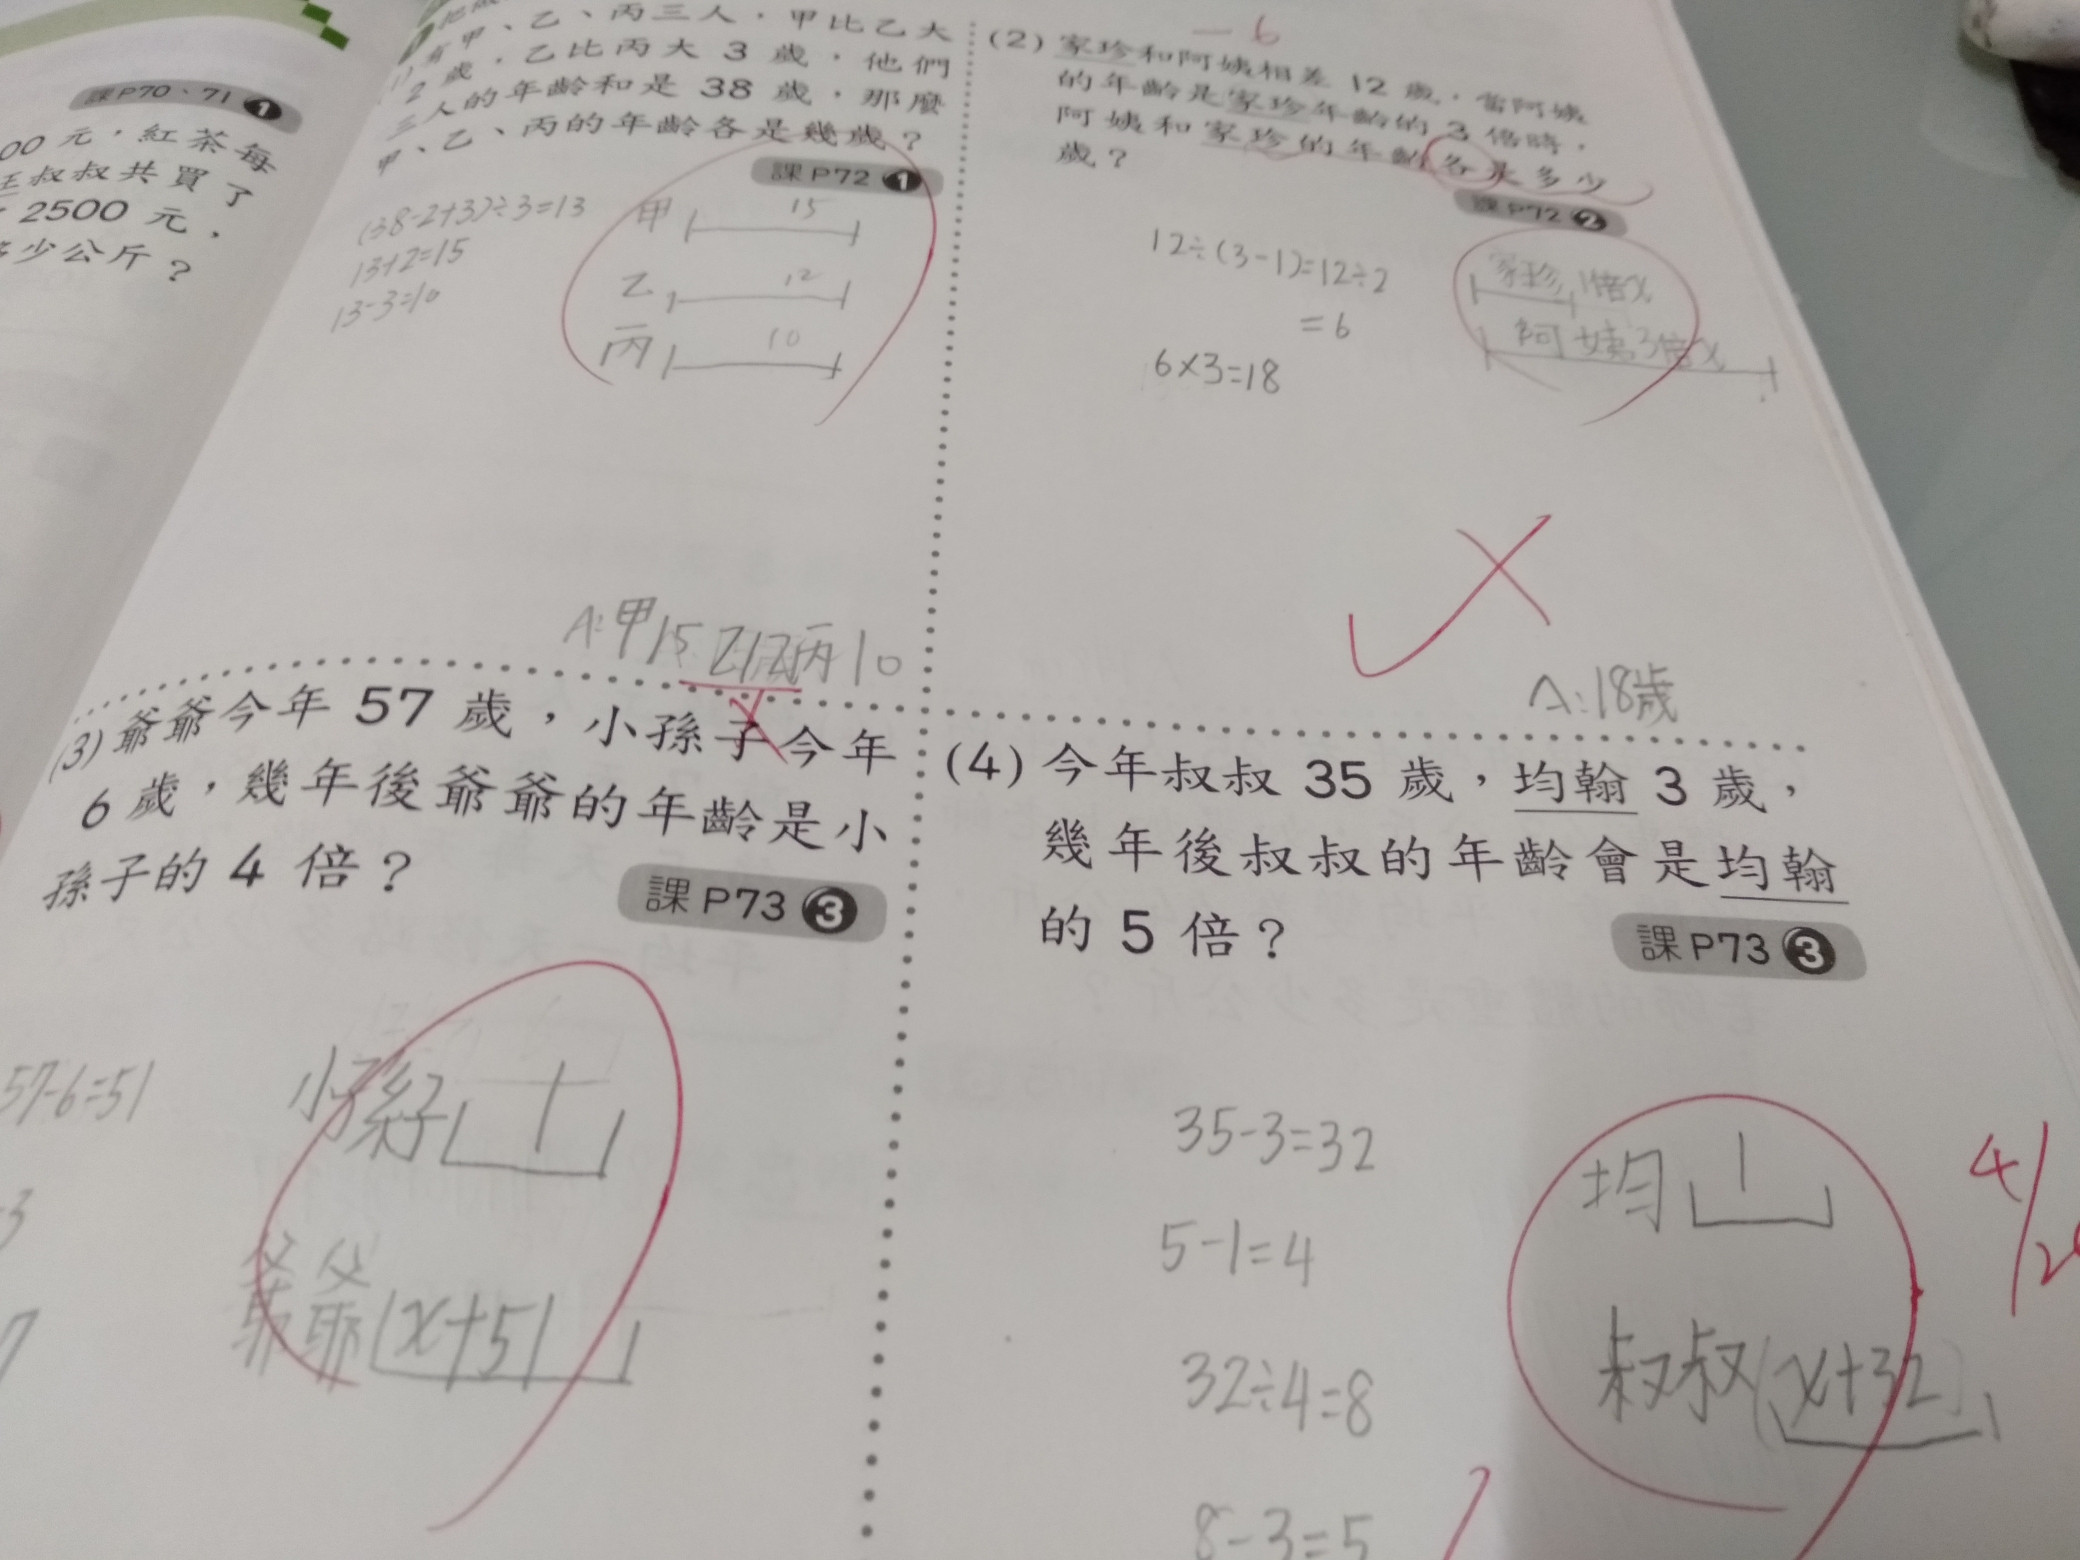 課P70、71 1
00 元，紅茶每
叔叔共買了
2500 元，
少公斤？
有甲、乙、丙三人，甲比乙大
2 歲，乙比丙大 3 歲，他們
三人的年齡和是 38 歲，那麼
甲、乙、丙的年齡各是幾歲？
課P72 1
(38-2+3)÷3=13
13+2=15
13-3=10
甲 15
乙 12
丙 10
A:甲15 乙12丙10
-6
(2) 家珍和阿姨相差 12 歲，當阿姨
的年齡是家珍年齡的 3 倍時，
阿姨和家珍的年齡各是多少
歲？
課P72 2
12÷(3-1)=12÷2
=6
6×3=18
家珍 1倍x
阿姨3倍x
A:18歲
(3) 爺爺今年 57 歲，小孫子今年
6 歲，幾年後爺爺的年齡是小
孫子的 4 倍？
課P73 3
57-6=51
3
7
小孫子 1
爺爺 x+51
(4) 今年叔叔 35 歲，均翰 3 歲，
幾年後叔叔的年齡會是均翰
的 5 倍？
課P73 3
35-3=32
5-1=4
32÷4=8
8-3=5
均 1
叔叔 (x+32)
4/2